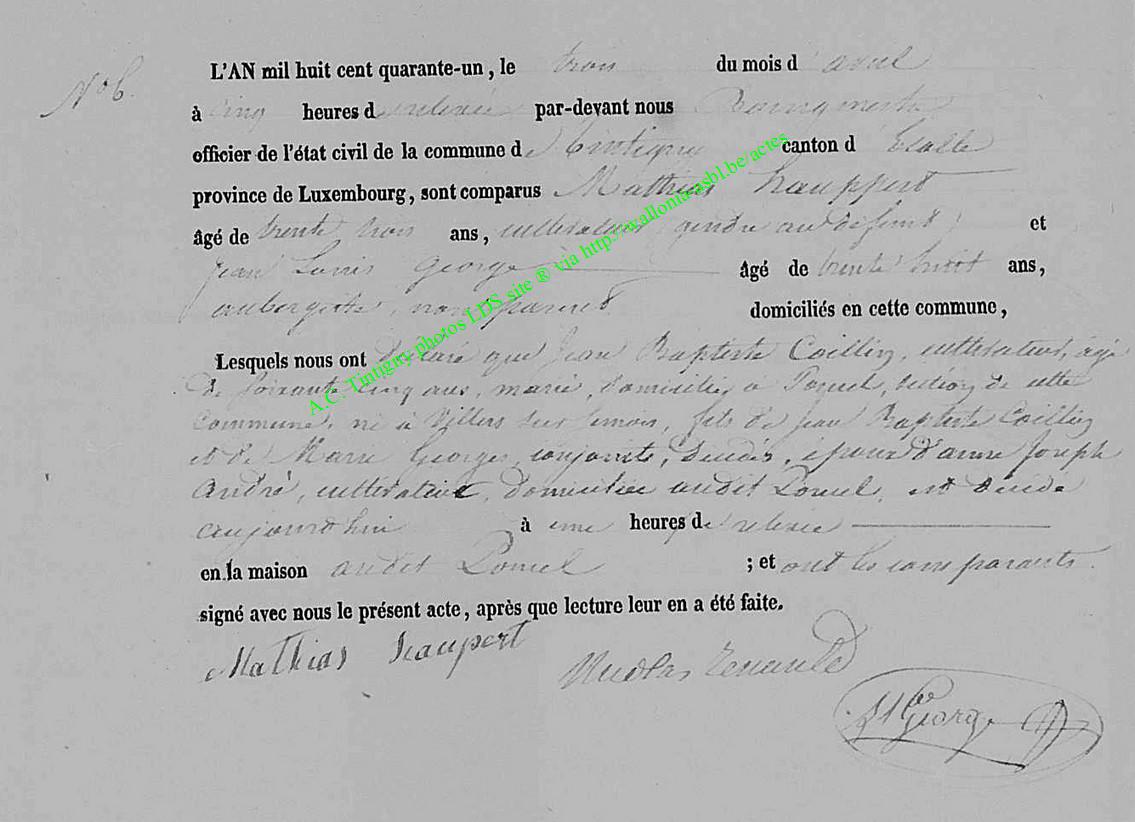 N° 6.
L'AN mil huit cent quarante-un, le trois du mois d'avril
à cinq heures de relevée par-devant nous Bourgmestre
officier de l'état civil de la commune de Tintigny canton d'Etalle
province de Luxembourg, sont comparus Mathias
âgé de trente trois ans, cultivateur gendre au défunt, et
Jean Louis George âgé de trente huit ans,
aubergiste, non parent domiciliés en cette commune,
Lesquels nous ont déclaré que Jean Baptiste Coillin, cultivateur, agé
de soixante cinq ans, marié, domicilié à Poncel, section de cette
commune, né à Villers sur Semois, fils de Jean Baptiste Coillin
et de Marie Georges, conjoints, décédés, époux d'anne Joseph
André, cultivatrice, domiciliée audit Poncel, est décédé
aujourd'hui à une heures de relevée
en la maison audit Poncel ; et ont les comparants
signé avec nous le présent acte, après que lecture leur en a été faite.
Mathias
Nicolas
George
A.C. Tintigny photos LDS site ® via http://wallonia-asbl.be/actes